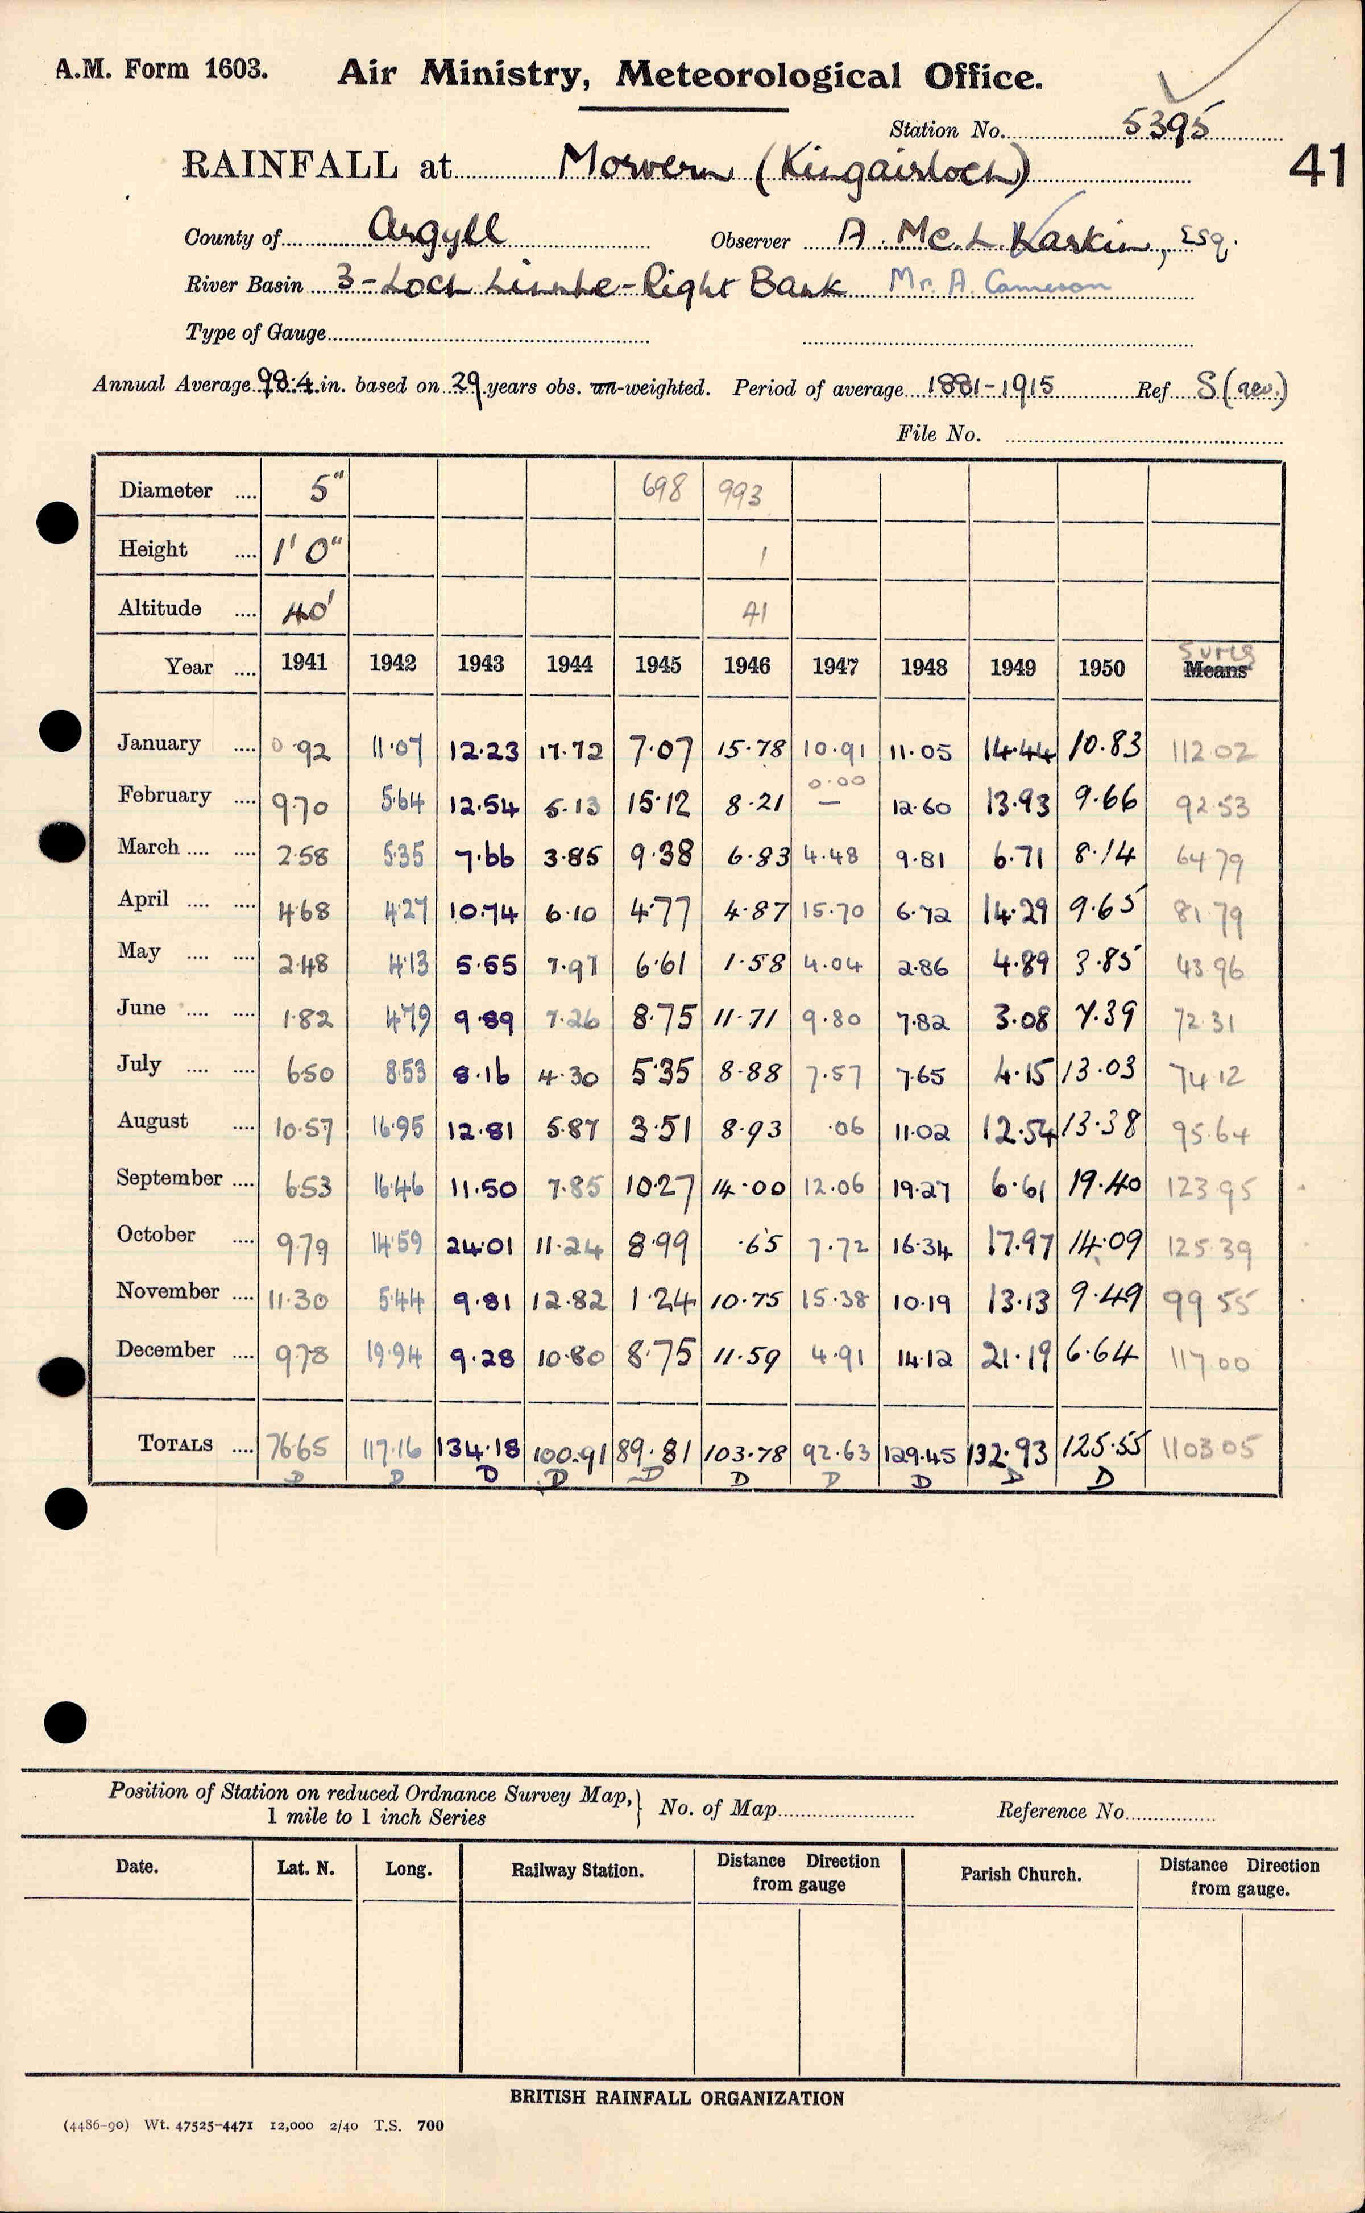 A.M. Form 1603. Air Ministry, Meteorological Office.
Station No. 5395
RAINFALL at Morvern (Kingairloch) 41
County of Argyll Observer A. Mc. L. Esq.
River Basin 3 - Loch Linnhe - Right Bank Mr. A. Cameron
Type of Gauge
Annual Average 98.4 in. based on 29 years obs. un-weighted. Period of average 1881-1915 Ref S (rev.)
File No.
Diameter .... 5" 698 993
Height .... 1' 0" 1
Altitude .... 40' A1
Sums
Year .... 1941 1942 1943 1944 1945 1946 1947 1948 1949 1950 Means
January .... 0.92 11.07 12.23 17.72 7.07 15.78 10.91 11.05 14.44 10.83 112.02
0.00
February .... 9.70 5.64 12.54 5.13 15.12 8.21 — 12.60 13.93 9.66 92.53
March .... .... 2.58 5.35 7.66 3.85 9.38 6.83 4.48 9.81 6.71 8.14 64.79
April .... .... 4.68 4.27 10.74 6.10 4.77 4.87 15.70 6.72 14.29 9.65 81.79
May .... .... 2.48 4.13 5.55 7.97 6.61 1.58 4.04 2.86 4.89 3.85 43.96
June .... .... 1.82 4.79 9.89 7.26 8.75 11.71 9.80 7.82 3.08 7.39 72.31
July .... .... 6.50 8.53 8.16 4.30 5.35 8.88 7.57 7.65 4.15 13.03 74.12
August .... 10.57 16.95 12.81 5.87 3.51 8.93 .06 11.02 12.54 13.38 95.64
September .... 6.53 16.46 11.50 7.85 10.27 14.00 12.06 19.27 6.61 19.40 123.95
October .... 9.79 14.59 24.01 11.24 8.99 .65 7.72 16.34 17.97 14.09 125.39
November .... 11.30 5.44 9.81 12.82 1.24 10.75 15.38 10.19 13.13 9.49 99.55
December .... 9.78 19.94 9.28 10.80 8.75 11.59 4.91 14.12 21.19 6.64 117.00
TOTALS .... 76.65 117.16 134.18 100.91 89.81 103.78 92.63 129.45 132.93 125.55 1103.05
D D D D D D D D D D
Position of Station on reduced Ordnance Survey Map, } No. of Map Reference No.
1 mile to 1 inch Series
Date. Lat. N. Long. Railway Station. Distance Direction from gauge Parish Church. Distance Direction from gauge.
BRITISH RAINFALL ORGANIZATION
(4486-90) Wt. 47525-4471 12,000 2/40 T.S. 700